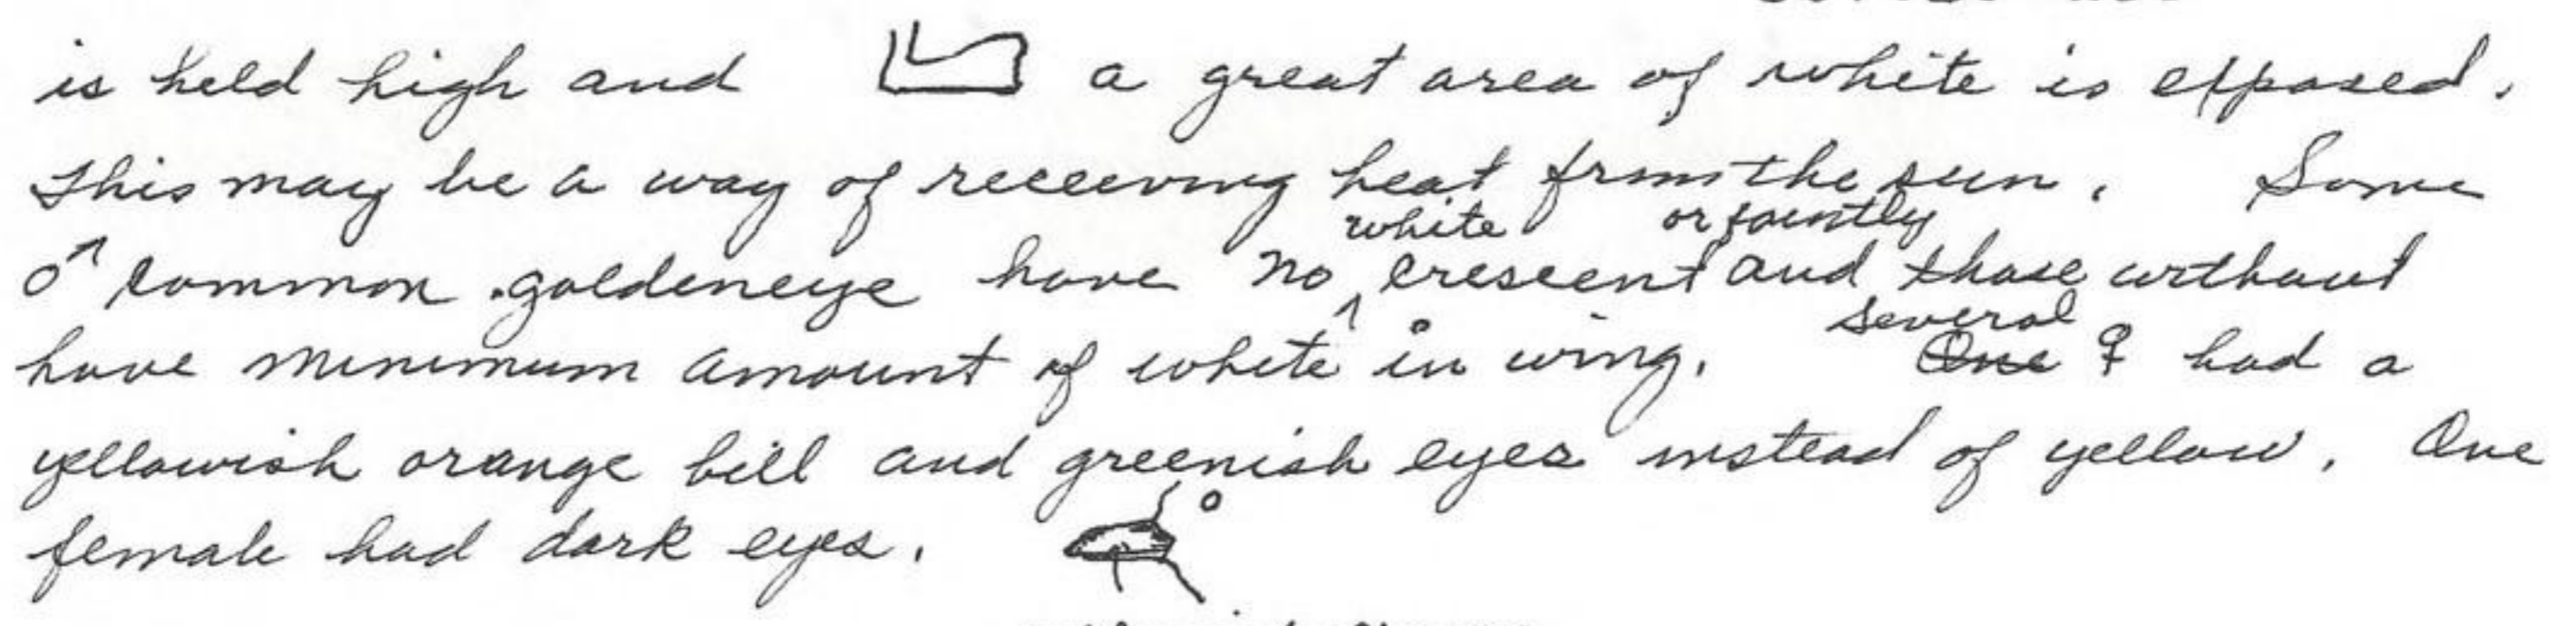 is held high and a great area of white is exposed.
This may be a way of receiving heat from the sun. Some
♂ common goldeneye have no white crescent or faintly and those without
have minimum amount of white in wing. several One ♀ had a
yellowish orange bill and greenish eyes instead of yellow. One
female had dark eyes.